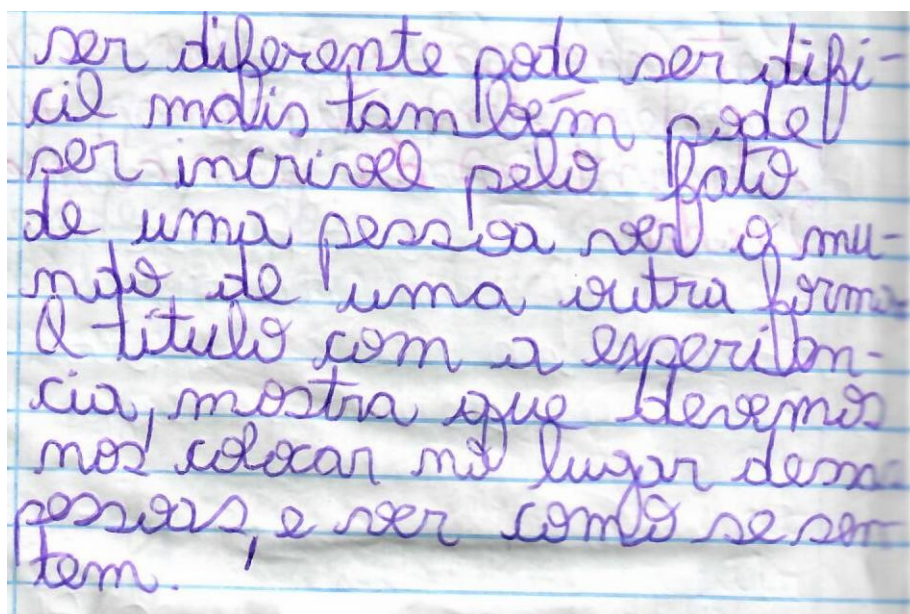 ser diferente pode ser difi-
cil mais também pode
ser incrivel pelo fato
de uma pessoa ver o mu-
ndo de uma outra forma
O titulo com a experiên-
cia, mostra que devemos
nos colocar no lugar dessas
pessoas, e ver como se sen-
tem.